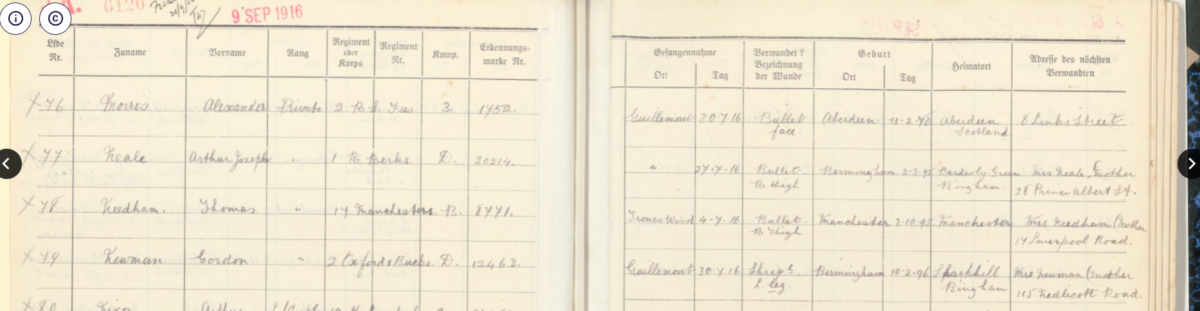 6120
9 SEP 1916
Lfde Nr. Zuname Vorname Rang Regiment oder Korps Regiment Nr. Komp. Erkennungsmarke Nr.
Gefangennahme Ort Tag Verwundet? Bezeichnung der Wunde Geburt Ort Tag Heimatort Adresse des nächsten Verwandten
76 Morris Alexander Private 2 R. S. Fus 3. 1452. Guillemont 30.7.16 Bullet face. Aberdeen 11.2.78 Aberdeen Scotland 6 Links Street
77 Neale Arthur Joseph " 1 R Berks D. 20214. " 27.7.16 Bullet R thigh Birmingham Green Bingham. Mrs Neale, Mother 38 Prince Albert St.
78 Needham. Thomas " 17 Manchesters B. 8771. Trones Wood Bullet R Thigh Manchester 2.10.95 Manchester Mrs Needham (Mother 14 Liverpool Road.
79 Newman Gordon " 2 Oxford & Bucks D. 12463. Guillemont 30.7.16 Shrapl L. leg. Birmingham 10.2.96 Sparkhill Bingham Mrs Newman (Mother 115 Nedlicott Road
80 Arthur